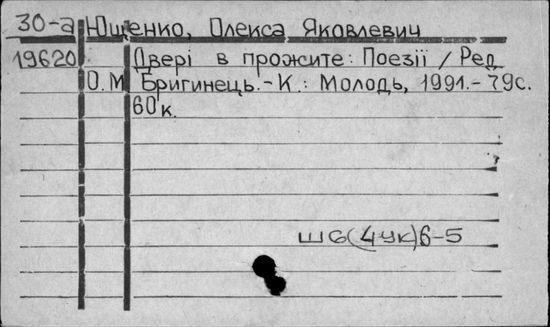 30-а Ющенко, Олекса Яковлевич
19620 Двері в прожите: Поезії / Ред.
О.М. Бригинець.-К.: Молодь, 1991.-79с.
60к.
Ш6(4УК)6-5